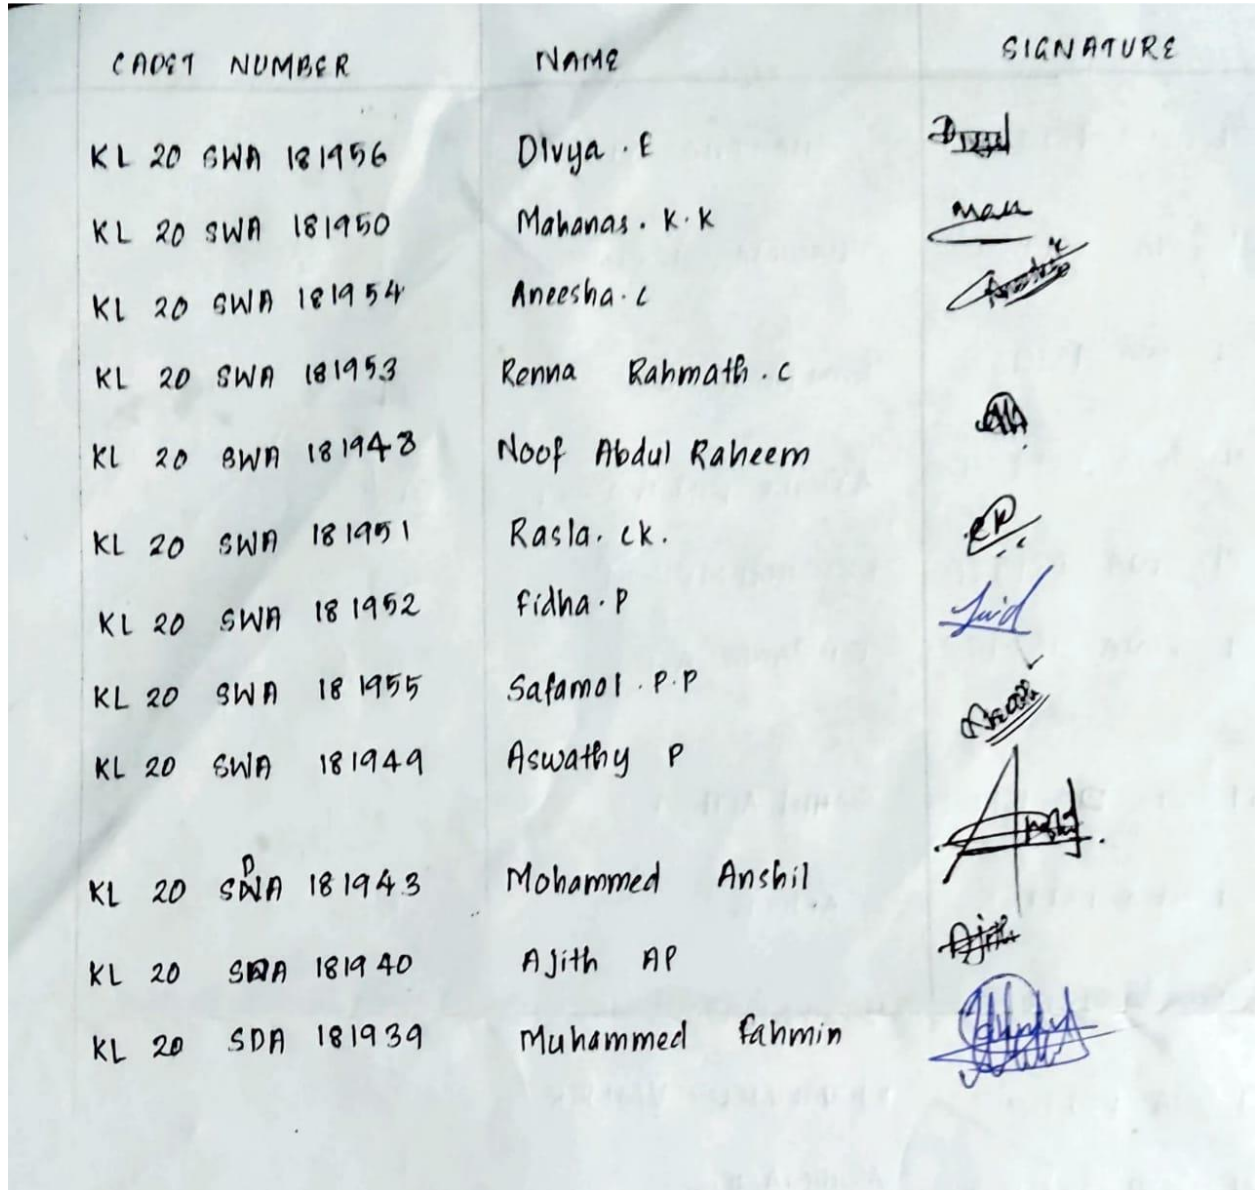 CADET NUMBER NAME SIGNATURE
KL 20 SWA 181956 Divya . E
KL 20 SWA 181950 Mahanas . K . K
KL 20 SWA 181954 Aneesha . C
KL 20 SWA 181953 Renna Rahmath . C
KL 20 SWA 181948 Noof Abdul Raheem
KL 20 SWA 181951 Rasla . ck .
KL 20 SWA 181952 Fidha . P
KL 20 SWA 181955 Safamol . P . P
KL 20 SWA 181949 Aswathy P
KL 20 SDA 181943 Mohammed Anshil
KL 20 SDA 181940 Ajith AP
KL 20 SDA 181939 Muhammed Fahmin